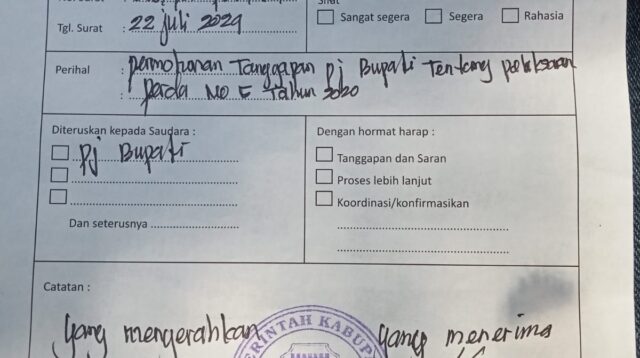 Tgl. Surat : 22 juli 2024
Sangat segera Segera Rahasia
Perihal : permohonan Tanggapan Pj Bupati Tentang
: perda No 5 Tahun 2020
Diteruskan kepada Saudara :
Pj Bupati
Dan seterusnya
Dengan hormat harap :
Tanggapan dan Saran
Proses lebih lanjut
Koordinasi/konfirmasikan
Catatan :
yang menyerahkan yang menerima